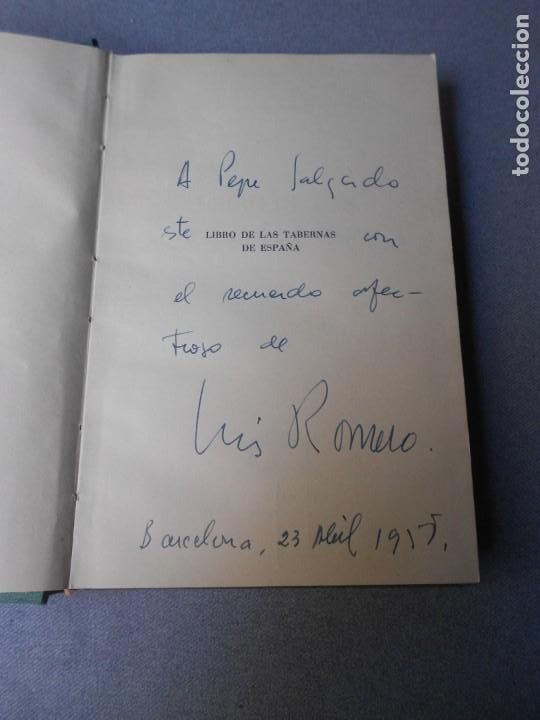 A Pepe Salgado
ste LIBRO DE LAS TABERNAS con
DE ESPAÑA
el recuerdo afec-
tuoso de
Luis Romero.
Barcelona, 23 Abril 1957.
todocoleccion.net